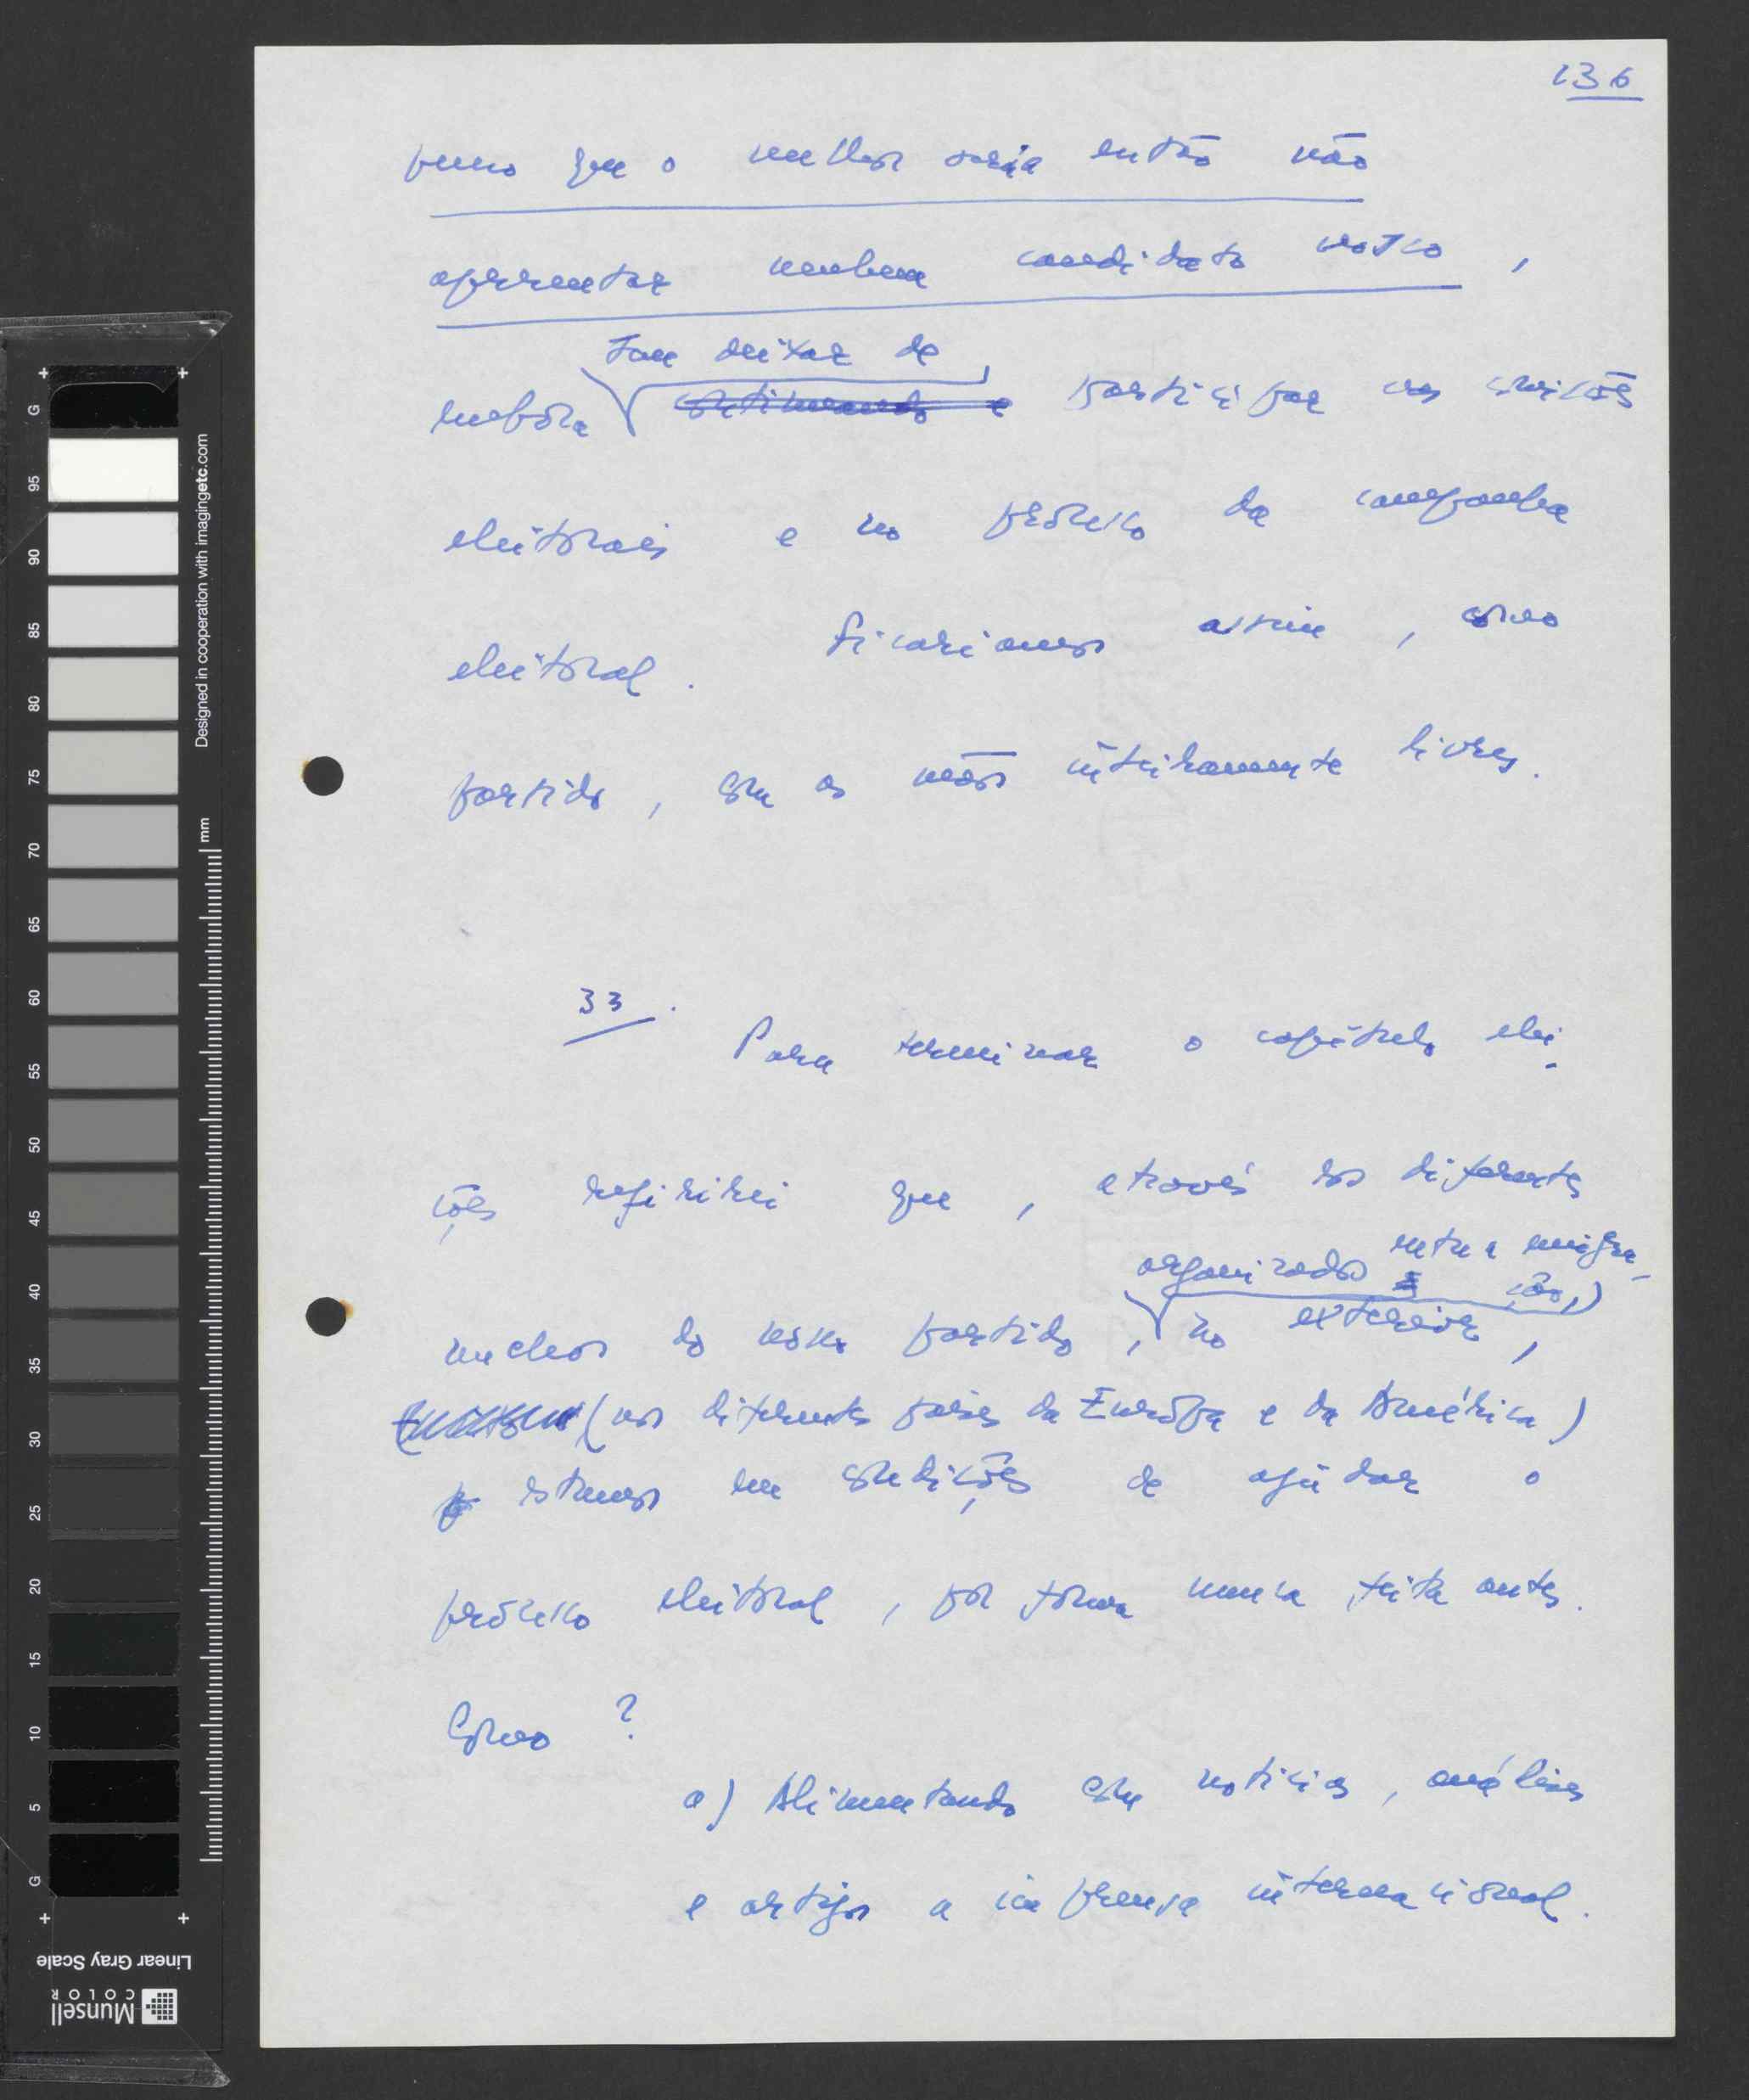 136
penso que o melhor seria então não
apresentar nenhum candidato nosso,
sem deixar de
embora continuando e participar nas comissões
eleitorais e no processo da campanha
eleitoral. Ficaríamos assim, como
partido, com as mãos inteiramente livres.
33.
Para terminar o capítulo elei-
ções referirei que, através dos diferentes
organizados entre a emigra-
ção,)
nucleos do nosso partido, no exterior,
(nos diferentes países da Európa e da América)
estamos em condições de ajudar o
processo eleitoral, por forma nunca feita antes.
Como?
a) Alimentando com noticias, análises
e artigos a imprensa internacional.
G 95 90 85 80 75 70 65 60 55 50 45 40 35 30 25 20 15 10 5 G
mm
Designed in cooperation with imagingetc.com
Linear Gray Scale
Munsell
COLOR